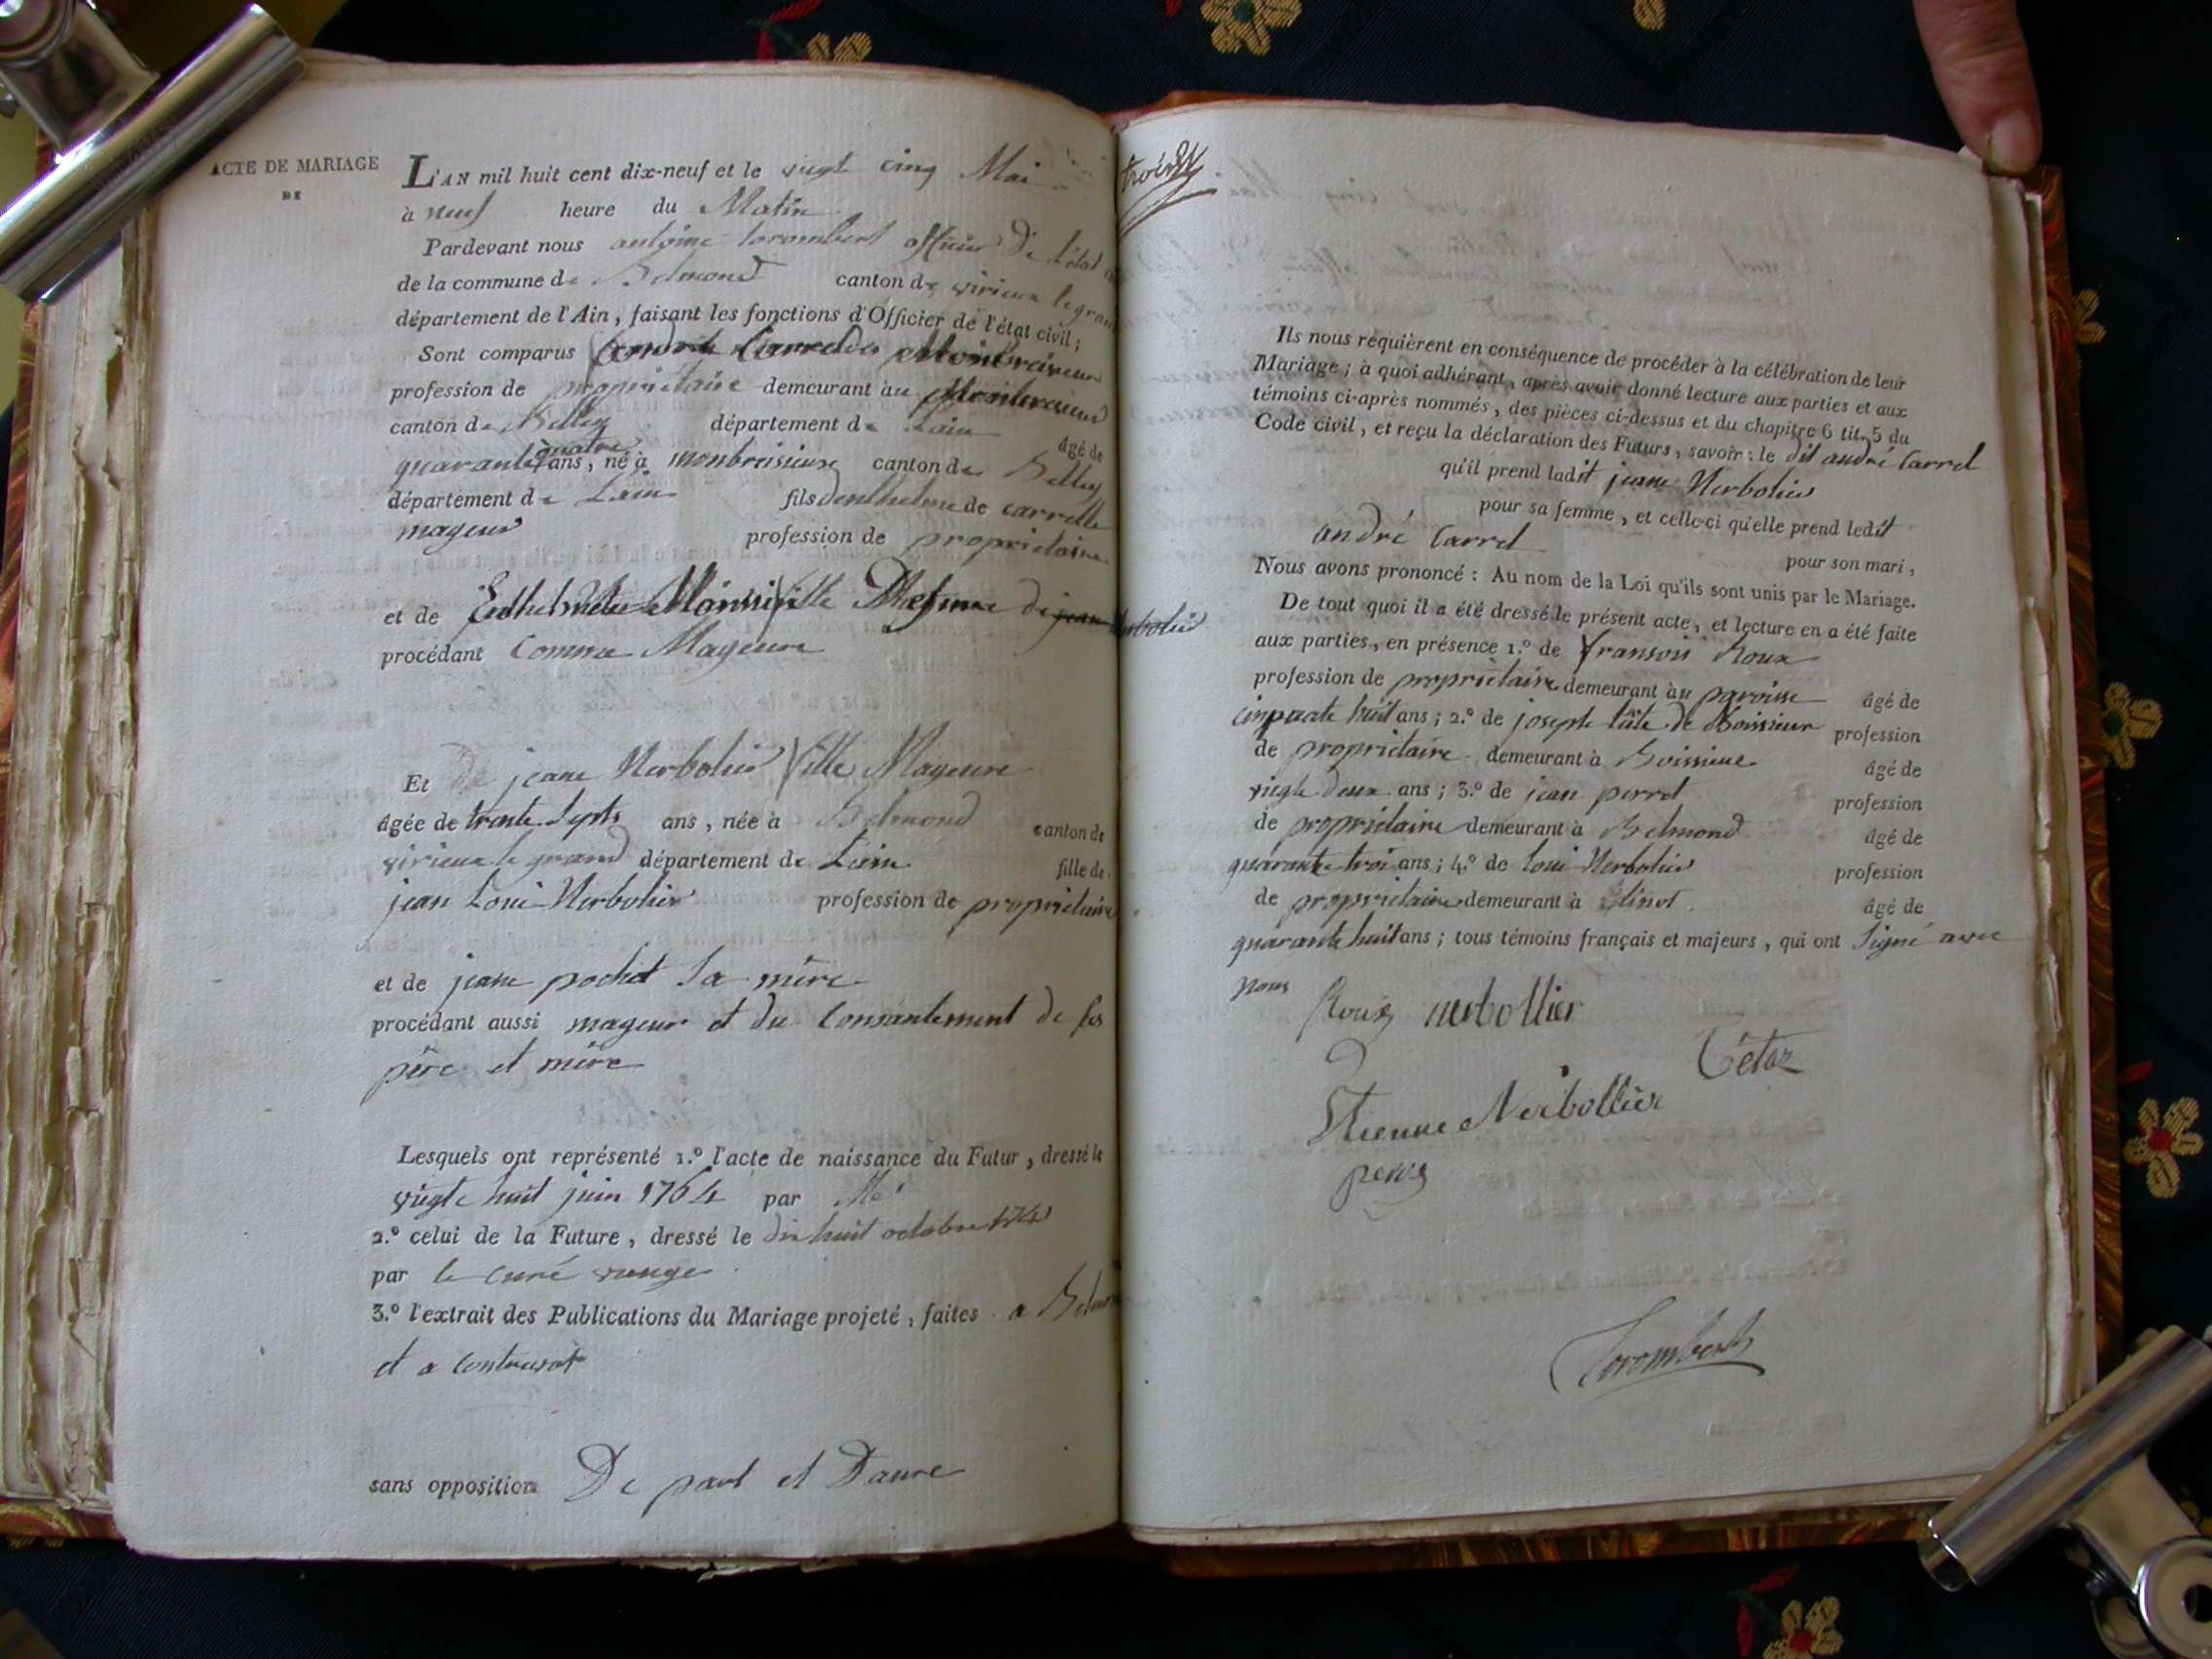 ACTE DE MARIAGE
DE
L'AN mil huit cent dix-neuf et le vingt cinq Mai
à neuf heure du Matin
Pardevant nous antoine torombert officier De l'état
de la commune de Belmond canton de virieux le grand
département de l'Ain, faisant les fonctions d'Officier de l'état civil;
Sont comparus andré Carrel
profession de propriétaire demeurant au
canton de Belley département de Lain âgé de
quarante quatre ans, né à monbreisieux canton de Belley
département de Lain fils denthelme de carrelle
mageur profession de propriétaire
et de fille de jean Nerbolier
procédant Comme Mageure
Et de jeane Nerbolier fille Mageure
âgée de trente septs ans, née à Belmond canton de
virieux le grand département de Lain fille de
jean Loui Nerbolier profession de propriétaire
et de jeane pochet sa mère
procédant aussi mageur et du Consantement de ses
père et mère
Lesquels ont représenté 1.º l'acte de naissance du Futur, dressé le
vingte huit juin 1764 par
2.º celui de la Future, dressé le dix huit octobre
par le curé
3.º l'extrait des Publications du Mariage projeté, faites a Belmond
et a contrevot
sans opposition De part et Daure
Ils nous requièrent en conséquence de procéder à la célébration de leur
Mariage; à quoi adhérant, après avoir donné lecture aux parties et aux
témoins ci-après nommés, des pièces ci-dessus et du chapitre 6 tit. 5 du
Code civil, et reçu la déclaration des Futurs, savoir: le dit andré Carrel
qu'il prend ladit jeane Nerbolier
pour sa femme, et celle-ci qu'elle prend ledit
andré Carrel pour son mari,
Nous avons prononcé: Au nom de la Loi qu'ils sont unis par le Mariage.
De tout quoi il a été dressé le présent acte, et lecture en a été faite
aux parties, en présence 1.º de fransois Roux
profession de propriétaire demeurant au paroisse âgé de
cinquate huit ans; 2.º de joseph de Boissieux profession
de propriétaire demeurant à Boissieux âgé de
vingte deux ans; 3.º de jean perret profession
de propriétaire demeurant à Belmond âgé de
quarante troi ans; 4.º de loui Nerbolier profession
de propriétaire demeurant à âgé de
quarante huit ans; tous témoins français et majeurs, qui ont signé avec
nous
Roux nerbollier
Tétaz
Etienne Nerbollier
Torombert